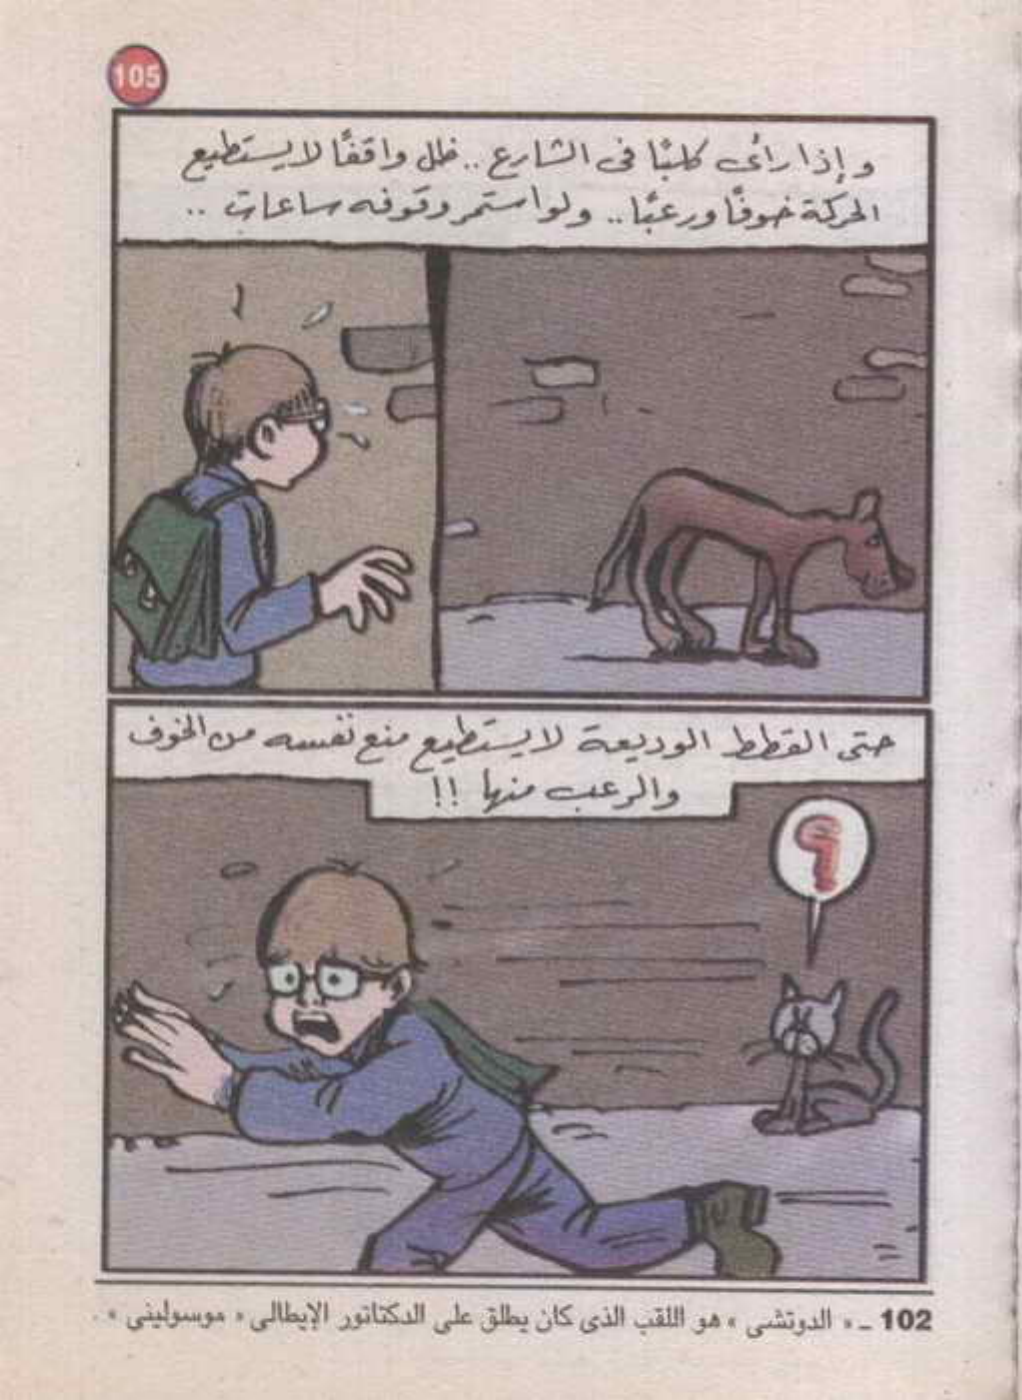 105
وإذا رأى كلبًا فى الشارع .. ظل واقفًا لا يستطيع
الحركة خوفًا ورعبًا .. ولو استمر وقوفه ساعات ..
حتى القطط الوديعة لا يستطيع منع نفسه من الخوف
والرعب منها !!
؟
102 ـ « الدوتشى » هو اللقب الذى كان يطلق على الدكتاتور الإيطالى « موسولينى » .